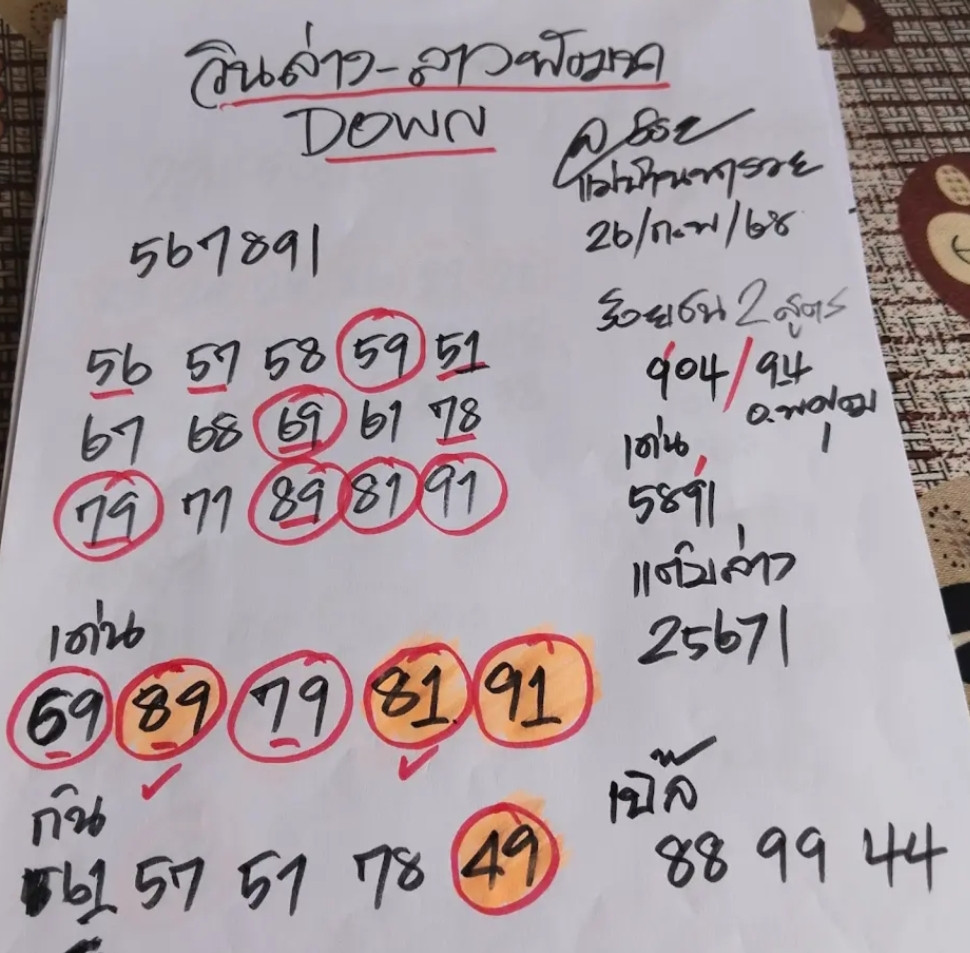 วินล่าง-ลาวพัฒนา
DOWN
แม่บ้านพารวย
26/ก.พ/68
567891
ร้อยชน 2 สูตร
904/94
56 57 58 59 51
67 68 69 61 78
เด่น
79 71 89 81 91
5891
แต้มล่าง
25671
เด่น
59 89 79 81 91
เบิ้ล
กัน
61 57 51 78 49
88 99 44